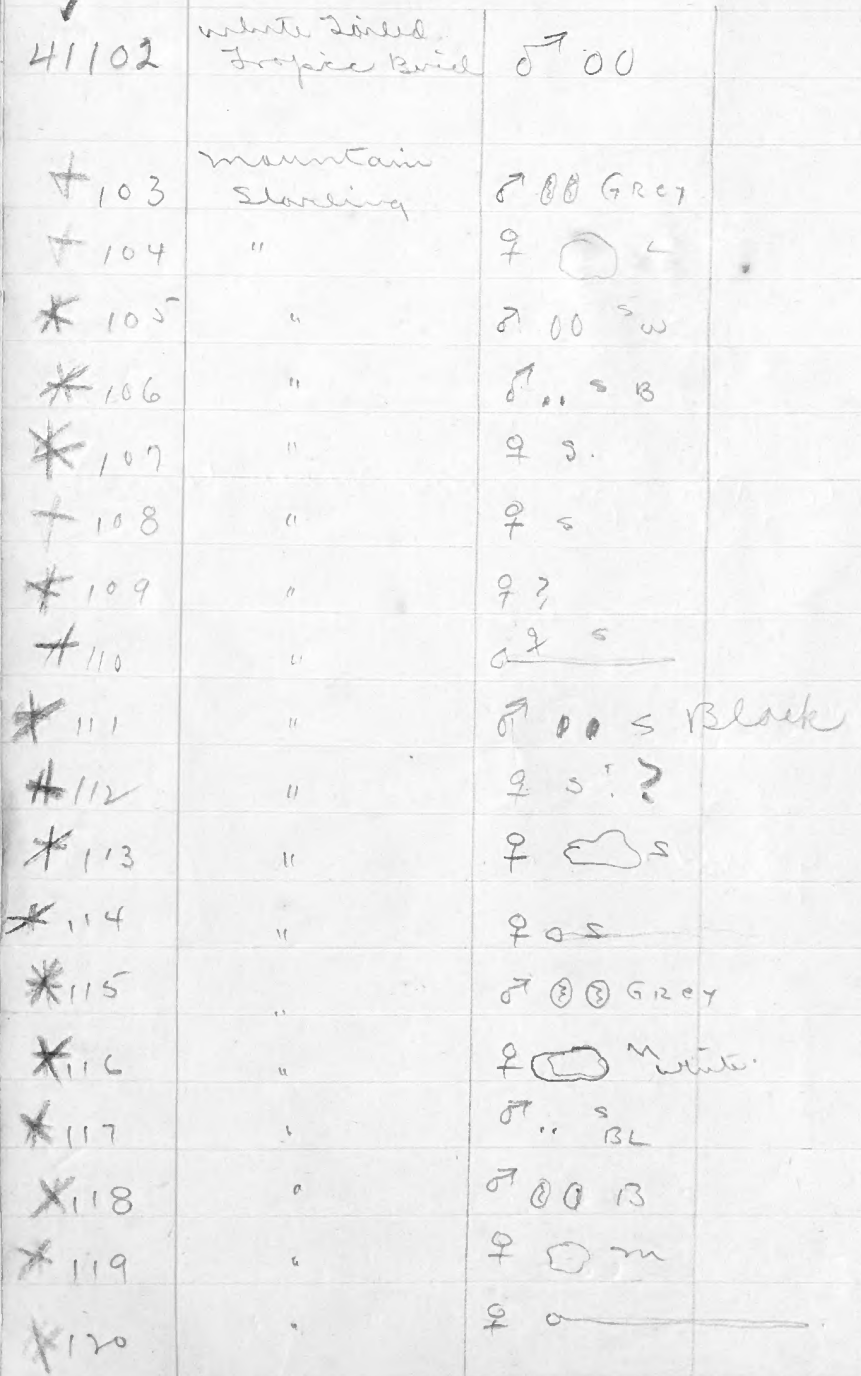 White Tailed
41102 Tropic Bird ♂ 00
Mountain
+ 103 Starling ♂ 00 GREY
+ 104 " ♀ L
* 105 " ♂ 00 S W
* 106 " ♂ .. S B
* 107 " ♀ S.
+ 108 " ♀ S
* 109 " ♀ ?
+ 110 " ♀ S
* 111 " ♂ S Black
# 112 " ♀ S ?
* 113 " ♀ S
* 114 " ♀ o S
* 115 " ♂ GREY
* 116 " ♀ M White.
* 117 " ♂ .. S BL
X 118 " ♂ 00 B
* 119 " ♀ M
X 120 " ♀ o